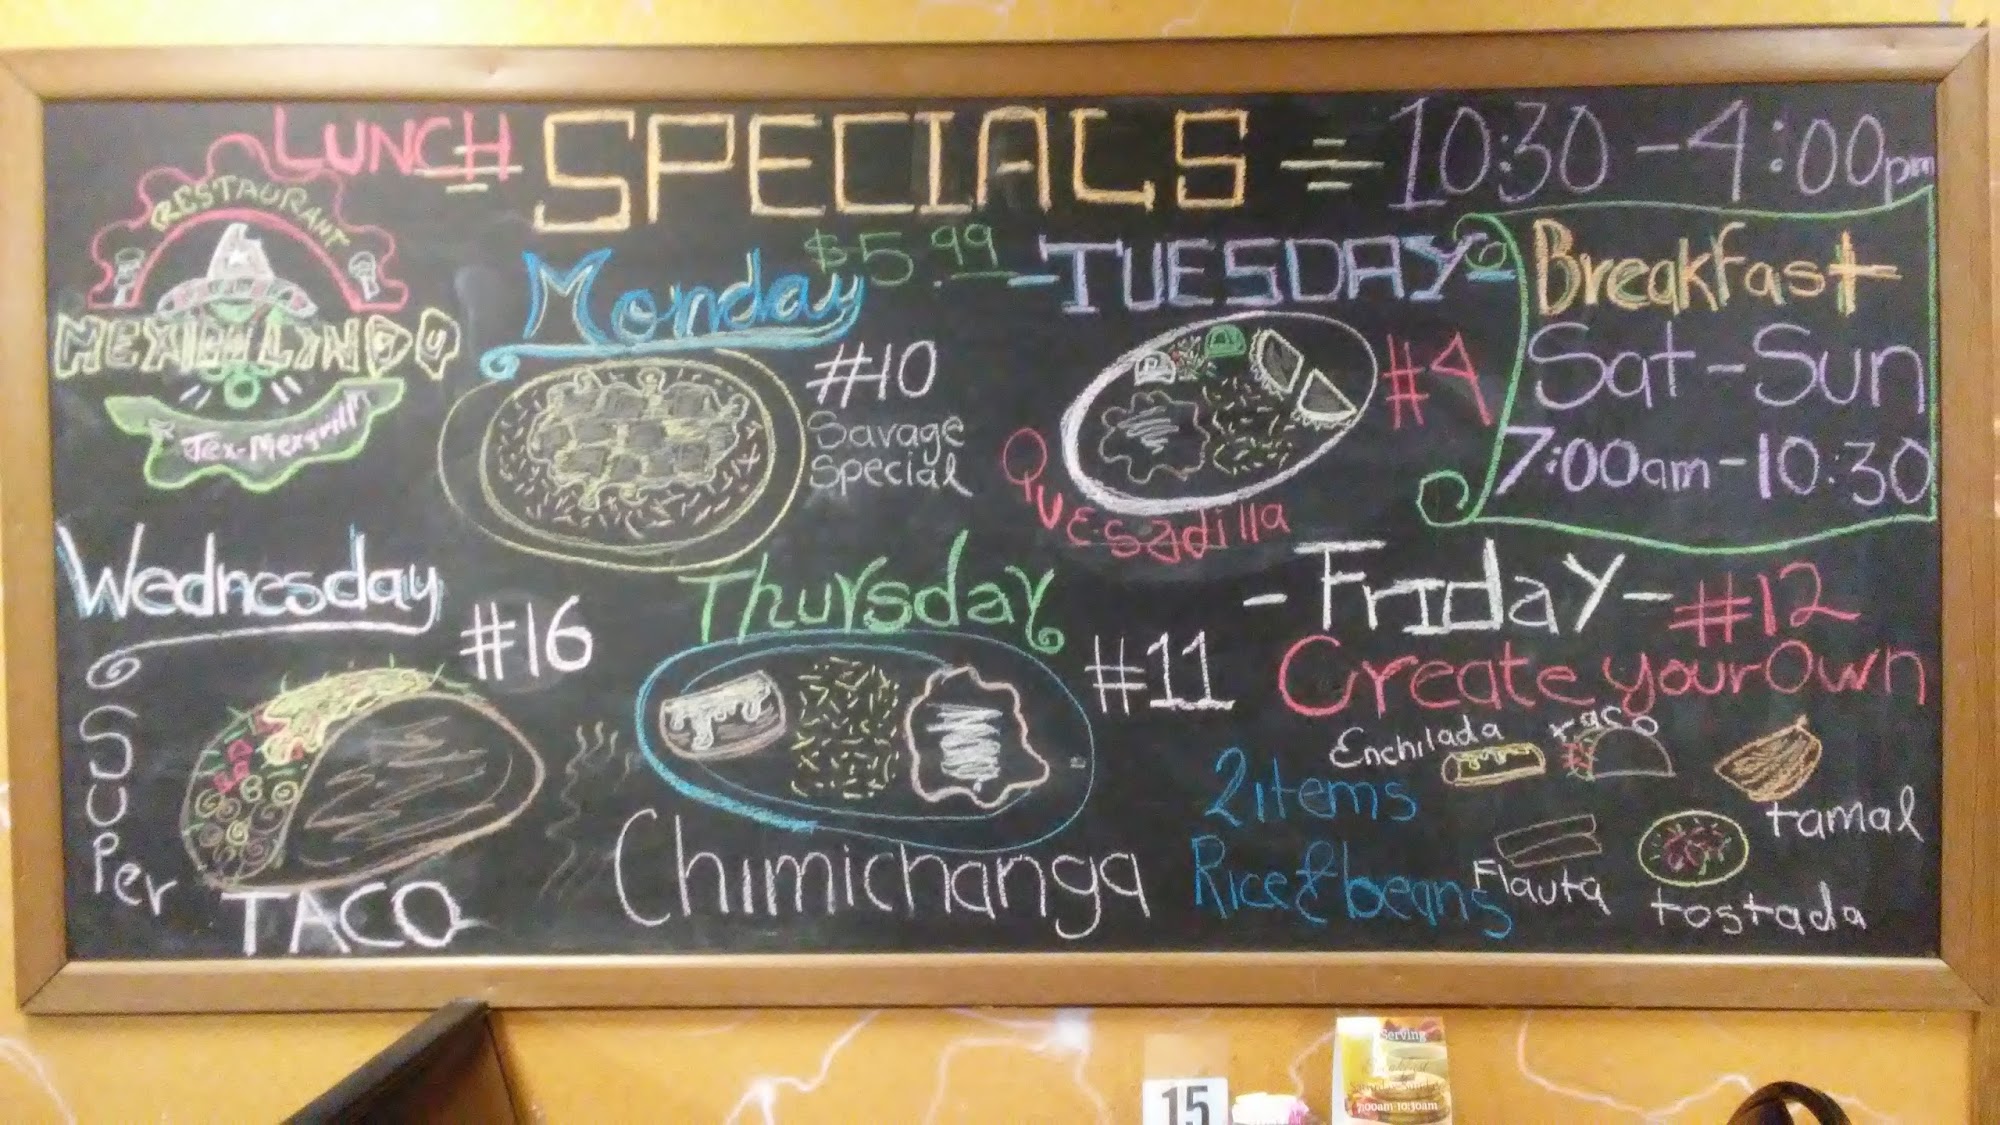 LUNCH SPECIALS 10:30 - 4:00pm
$5.99
RESTAURANT
MEXICO LINDO
Tex-Mex grill
Monday
#10
Savage
Special
-TUESDAY-
#4
Quesadilla
Breakfast
Sat-Sun
7:00am-10:30
Wednesday
#16
Super
TACO
Thursday
#11
Chimichanga
-Friday- #12
Create your Own
2 items
Rice & beans
Enchilada
Taco
tamal
Flauta
tostada
15
Serving
7:00am-10:30am